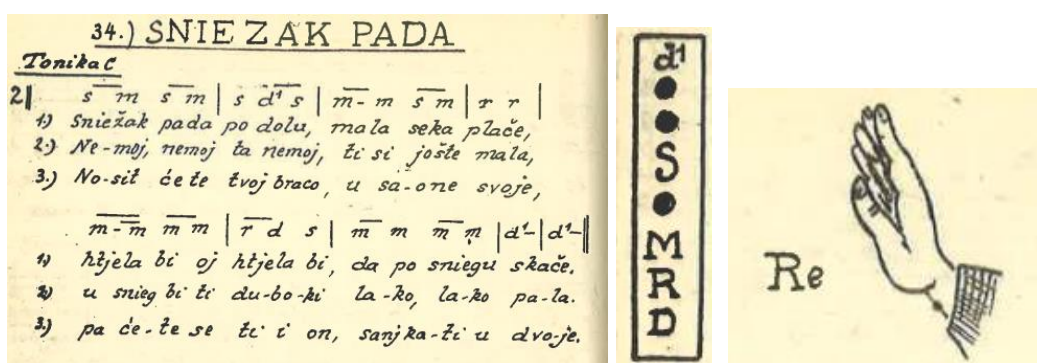 34.) SNIEŽAK PADA
Tonika C
2| s m s m | s d¹ s | m- m s m | r r |
1.) Sniežak pada po dolu, mala seka plače,
2.) Ne-moj, nemoj ta nemoj, ti si jošte mala,
3.) No-sit će te tvoj braco, u sa-one svoje,
m-m m m | r d s | m m m m | d¹- | d¹- ||
1) htjela bi oj htjela bi, da po sniegu skače.
2) u snieg bi ti du-bo-ki la-ko, la-ko pa-la.
3.) pa će-te se ti i on, sanjka-ti u dvo-je.
d¹
S
M
R
D
Re